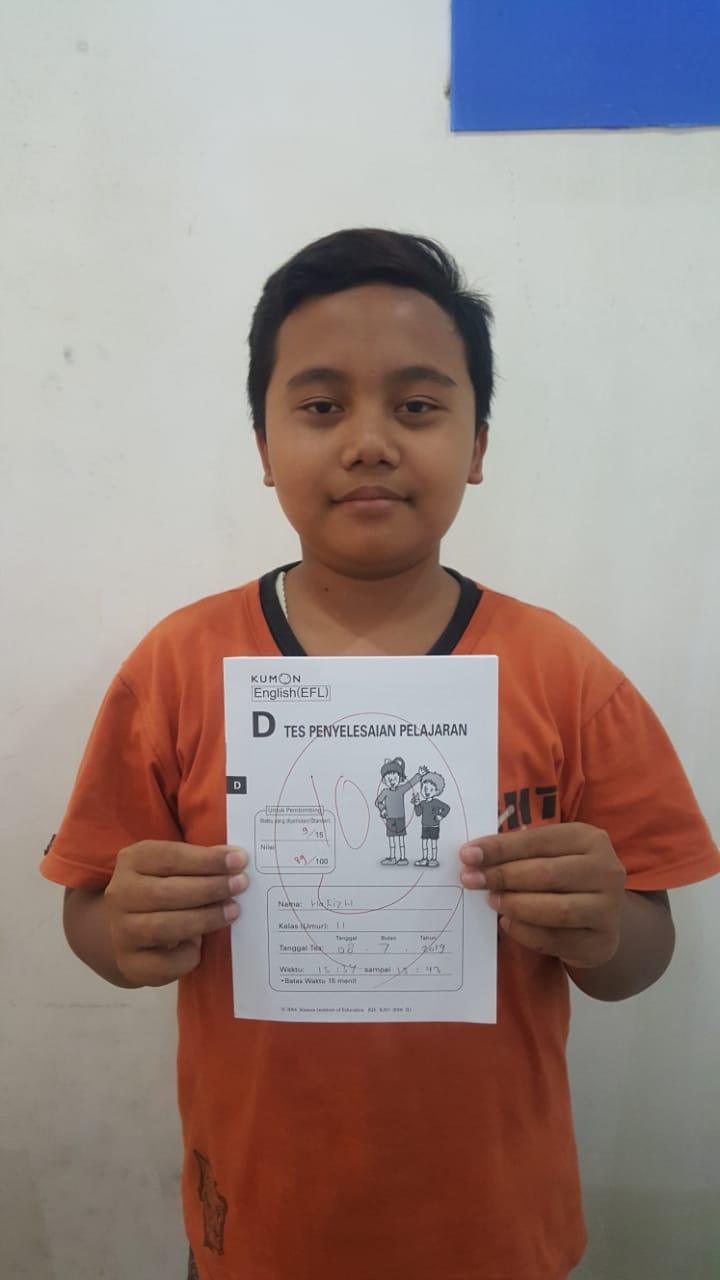 KUMON
English(EFL)
D TES PENYELESAIAN PELAJARAN
D
10
Untuk Pembimbing
Waktu yang diperlukan/Standar
9/15
Nilai
89/100
Nama: Hafizh
Kelas (Umur): 11
Tanggal Bulan Tahun
Tanggal Tes: 08 . 7 . 2019
Waktu: 15 : 34 sampai 15 : 43
•Batas Waktu 15 menit
Kumon Institute of Education